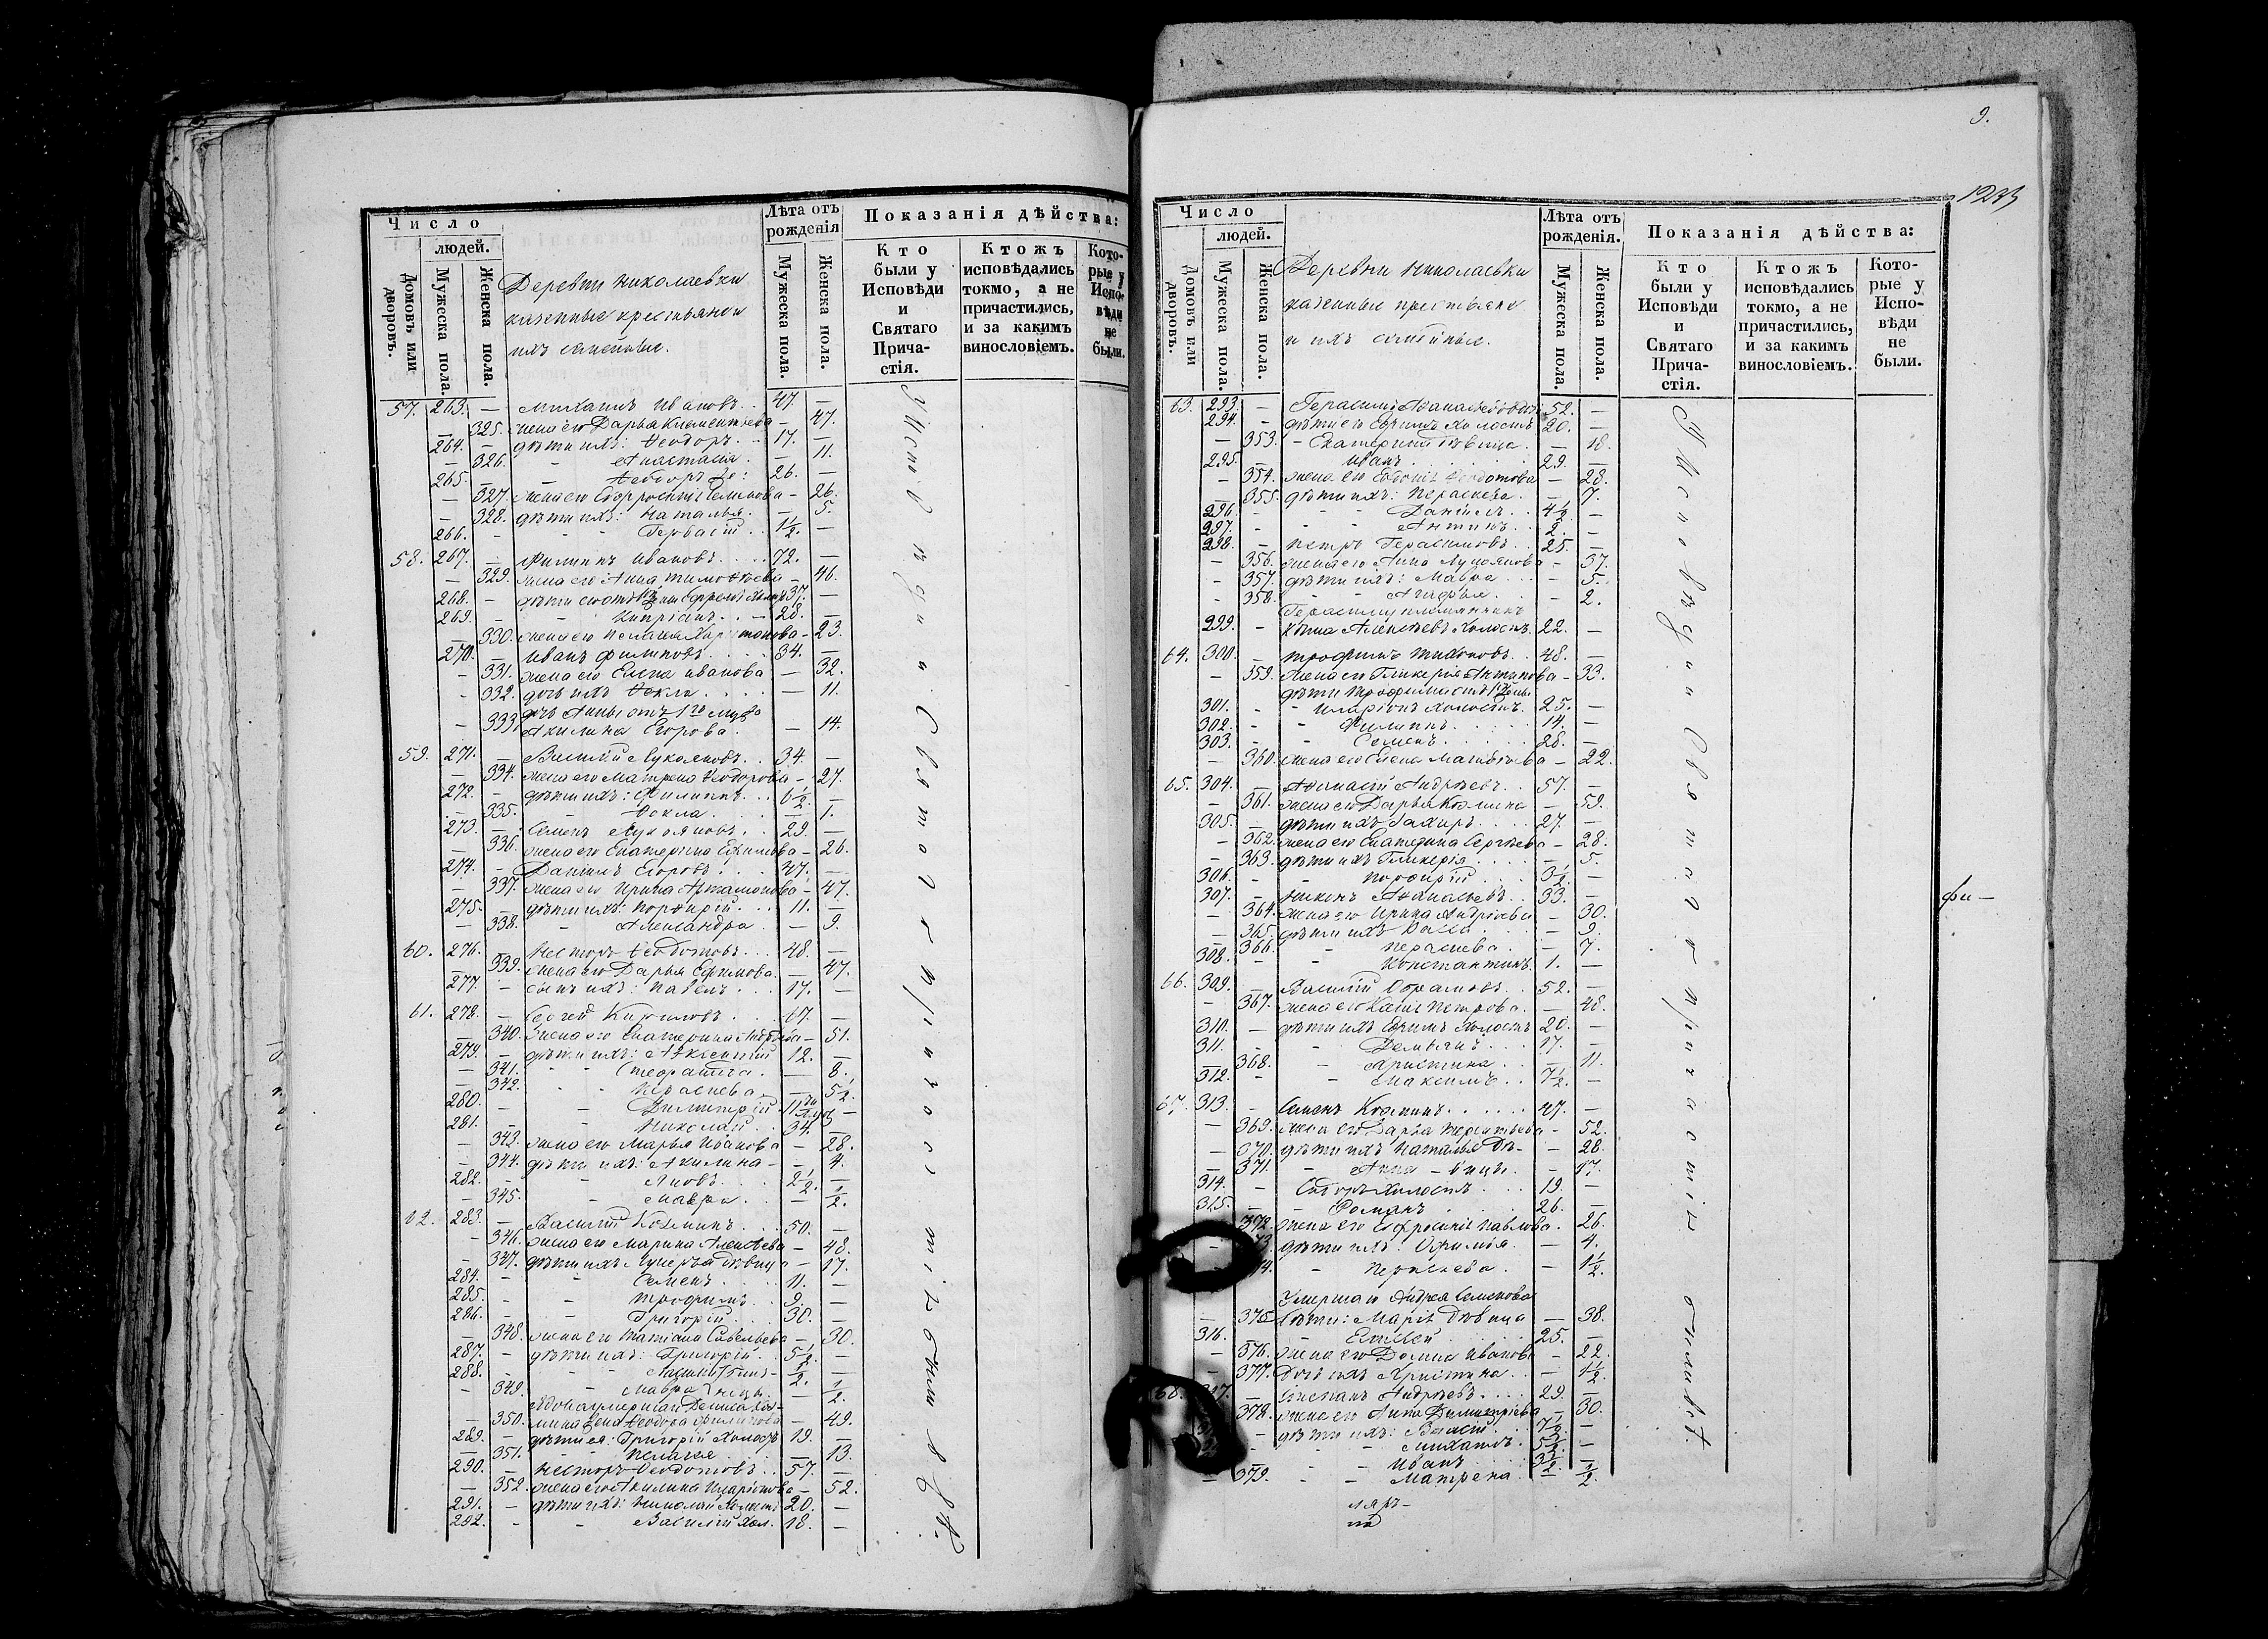 Число
людей.
Домовъ или дворовъ.
Мужеска пола.
Женска пола.
Деревни Николаевки
казенные крестьяне и
ихъ семейные.
Лѣта отъ рожденія
Мужеска пола.
Женска пола.
Показанія дѣйства:
Кто были у Исповѣди и Святаго Причастія.
Ктожъ исповѣдались токмо, а не причастились, и за какимъ винословіемъ.
Которые у Исповѣди не были.
57. 263. — Михаилъ Ивановъ. 47. —
— 325. жена его Дарья Климентьева — 47.
264. — дѣти ихъ: Ѳеодоръ. 17. —
— 326. — Анастасія. — 11.
265. — Ѳеодоръ 26. —
— 327. жена его Евфросинія — 26.
— 328. дѣти ихъ: Наталья. — 5.
266. — Гервасій 1½. —
58. 267. — Филиппъ Ивановъ. 72. —
— 329. жена его Анна Тимоѳѣева — 46.
268. — дѣти его отъ Ефремъ 37. —
269. — Кипріанъ. 28. —
— 330. жена его Пелагея Харитонова — 23.
270. — Иванъ Филиповъ. 34. —
— 331. жена его Елена Иванова — 32.
— 332. дочь ихъ Ѳекла. — 11.
дочь Анны отъ 1го мужа
— 333. Акилина Егорова. — 14.
59. 271. — Василій Лукояновъ. 34. —
— 334. жена его Матрена Ѳеодорова — 27.
272. — дѣти ихъ: Филиппъ. 6½. —
— 335. — Ѳекла. — 1.
273. — Семенъ Лукояновъ. 29. —
— 336. жена его Екатерина Ефимова — 26.
274. — Даніилъ Егоровъ. 47. —
— 337. жена его Ирина Артамонова — 47.
275. — дѣти ихъ: Порфирій. 11. —
— 338. — Александра. — 9.
60. 276. — Несторъ Ѳеодотовъ. 48. —
— 339. жена его Дарья Ефимова. — 47.
277. — сынъ ихъ: Павелъ. 17. —
61. 278. — Сергѣй Кириловъ. 67. —
— 340. жена его Екатерина — 51.
279. — дѣти ихъ: Авксентій 12. —
— 341. — Стефанида. — 8.
— 342. — Параскева — 5½.
280. — Димитрій 11
281. — Николай 34. —
— 343. жена его Марья Иванова — 28.
— 344. дѣти ихъ: Акилина — 4.
282. — Яковъ. 2½. —
— 345. — Мавра. — ½.
62. 283. — Василій Козминъ. 50. —
— 346. жена его Марина Алексѣева — 48.
— 347. дѣти ихъ Лукерья дѣвица — 17.
284. — Семенъ. 11. —
285. — Трофимъ. 9. —
286. — Григорій. 30. —
— 348. жена его Татіана Савельева — 30.
287. — дѣти ихъ: Григорій. 5½. —
288. — ½. —
— 349. — Мавра — ½.
Вдова умершаго Дениса Коз-
— 350. мина жена Ѳеодора Филипова — 49.
289. — дѣти ея: Григорій холостъ 19. —
— 351. — Пелагея — 13.
290. — Несторъ Ѳеодотовъ. 57. —
— 352. жена его Акилина Иларіонова — 52.
291. — дѣти ихъ: Николай холостъ 20. —
292. — Василій хол. 18. —
У Исповѣди и Святаго Причастія были всѣ.
9.
Число
людей.
Домовъ или дворовъ.
Мужеска пола.
Женска пола.
Деревни Николаевки
казенные крестьяне
и ихъ семейные.
Лѣта отъ рожденія.
Мужеска пола.
Женска пола.
Показанія дѣйства:
Кто были у Исповѣди и Святаго Причастія.
Ктожъ исповѣдались токмо, а не причастились, и за какимъ винословіемъ.
Которые у Исповѣди не были.
63. 293. — Герасимъ 52. —
294. — дѣти его Ефримъ холостъ 20. —
— 353. — Екатерина дѣвица. — 18.
295. — Иванъ 29. —
— 354. жена его Евдокія Ѳеодотова — 28.
— 355. дѣти ихъ: Параскева. — 7.
296. — Даніилъ. 4½. —
297. — Антипъ. 2. —
298. — Петръ Герасимовъ. 25. —
— 356. жена его Анна Лукоянова — 37.
— 357. дѣти ихъ: Мавра — 5.
— 358. — Агафья. — 2.
Герасиму племянникъ
299. — Козма Алексѣевъ холостъ. 22. —
64. 300. — Трофимъ Тихоновъ. 48. —
— 359. жена его Гликерія Антипова — 33.
дѣти Трофима отъ 1й жены
301. — Иларіонъ холостъ. 25. —
302. — Филиппъ. 14. —
303. — Семенъ. 28. —
— 360. жена его Елена Матвѣева — 22.
65. 304. — Аѳанасій Андрѣевъ. 57. —
— 361. жена его Дарья Козмина — 59.
305. — дѣти ихъ Захаръ. 27. —
— 362. жена его Екатерина Сергѣева — 28.
— 363. дѣти ихъ Гликерія — 5.
306. — Порфирій 3½. —
307. — Никонъ Аѳанасьевъ. 33. —
— 364. жена его Ирина Андріева — 30.
— 365. дѣти ихъ Васса — 9.
— 366. — Параскева. — 7.
308. — Константинъ. 1. —
66. 309. — Василій Абрамовъ. 52. —
— 367. жена его Ксенія Петрова. — 48.
310. — дѣти ихъ Ефримъ холостъ 20. —
311. — Демьянъ. 17. —
— 368. — Христина. — 11.
312. — Максимъ. 7½. —
67. 313. — Семенъ Козминъ. 47. —
— 369. жена его Дарья Терентьева — 52.
— 370. дѣти ихъ Наталья дѣ- — 28.
— 371. — Анна — вицы. — 17.
314. — Сидоръ холостъ. 19. —
315. — Романъ. 26. —
372. жена его Евфросинія Павлова. — 26.
дѣти ихъ: Офимья. — 4.
— Параскева. — 1½.
Умершаго Андрея Семенова
— 375. дѣти: Марія дѣвица — 38.
316. — Елисей 25. —
— 376. жена его Домна Иванова — 22.
— 377. дочь ихъ Христина. — 1½.
68. Степанъ Андрѣевъ. 29. —
378. жена его Анна Димитріева — 30.
— дѣти ихъ: Власій. 7½. —
— Михаилъ. 5½. —
— Иванъ. 3½. —
— 379. — Матрена. — ½.
У Исповѣди и Святаго Причастія были всѣ.